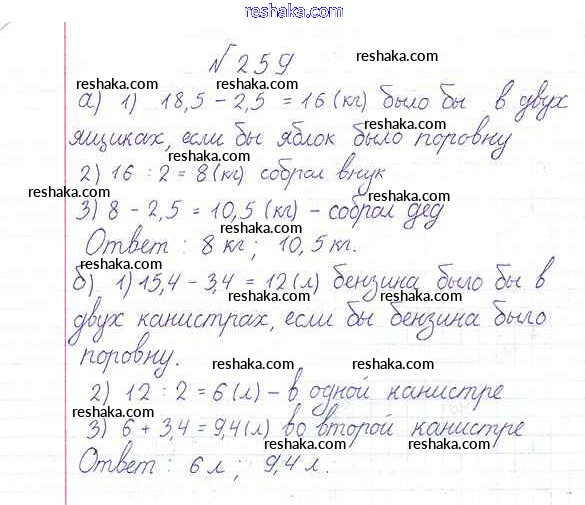 reshaka.com
№ 259
reshaka.com reshaka.com
а) 1) 18,5 - 2,5 = 16 (кг) было бы в двух
reshaka.com reshaka.com
ящиках, если бы яблок было поровну
reshaka.com
2) 16 : 2 = 8 (кг) собрал внук
reshaka.com
3) 8 - 2,5 = 10,5 (кг) - собрал дед
reshaka.com
Ответ : 8 кг ; 10,5 кг.
reshaka.com reshaka.com
б) 1) 15,4 - 3,4 = 12 (л) бензина было бы в
reshaka.com reshaka.com
двух канистрах, если бы бензина было
поровну.
reshaka.com reshaka.com
2) 12 : 2 = 6 (л) - в одной канистре
reshaka.com reshaka.com
3) 6 + 3,4 = 9,4 (л) во второй канистре
reshaka.com reshaka.com
Ответ : 6 л ; 9,4 л.
reshaka.com